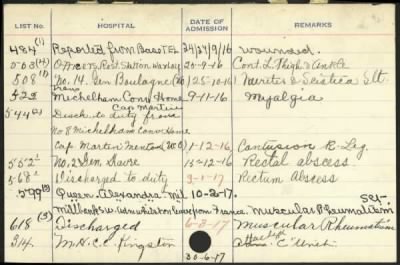 LIST No. HOSPITAL DATE OF ADMISSION REMARKS
484 (1) Reported from Base Tel 24/9/16 wounded.
503 (4) Officers Rest Station 20-9-16 Cont. L. Thigh & Ankle
508 (1) No. 14. Gen Boulogne 25-10-16 Neuritis & Sciatica Slt.
525 Michelham Conv Home 9-11-16 Myalgia
Cap Martin
544 (2) Disch to duty from
No 8 Michelham Conv Home
Cap Martin Mentone 1-12-16 Contusion R-Leg.
552 No. 2 Gen Havre 15-12-16 Rectal abscess
568 Discharged to duty 3-1-17 Rectum Abscess
599 Queen Alexandra Mil 10-2-17. Sev.
Millbank S.W. from France. Muscular Rheumatism
618 (3) Discharged 6-3-17 Muscular Rheumatism
314 M.H.C.C. Kingston "C" Unit
30-6-17